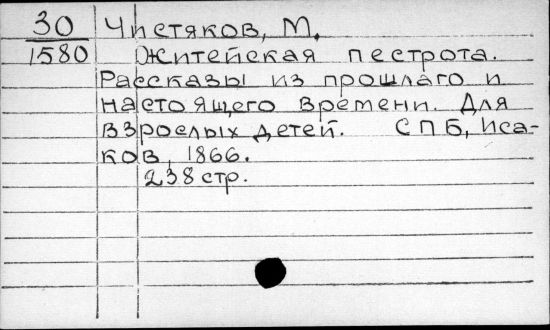 30 Чистяков, М.
1580 Житейская пестрота.
Рассказы из прошлаго и
настоящего времени. Для
взрослых детей. СПБ, Иса-
ков, 1866.
238 стр.